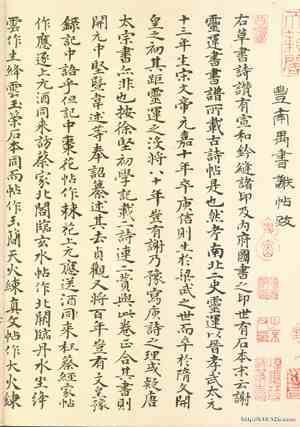 豐南禺書謝帖跋
右草書詩讚有宣和鈐縫諸印及內府圖書之印世有石本末云謝
靈運書書譜所載古詩帖是也然考南北二史靈運以晉孝武太元
十三年生宋文帝元嘉十年卒庾信則生於梁武之世而卒於隋文開
皇之初其距靈運之沒將八十年豈有謝乃豫寫庾詩之理或疑唐
太宗書亦非也按徐堅初學記載二詩連二贊與此卷正合其書則
開元中堅暨韋述等奉詔纂述其去貞觀又將百年豈有文皇豫
錄記中語乎但記中棗花帖作棘花上元應送酒同來在蔡經家帖
作應逐上元酒同來訪蔡家北閣臨玄水帖作北闕臨丹水坐絳
雲作生絳雲玉策石本同而帖作玉蕳天火練真文帖作大火練